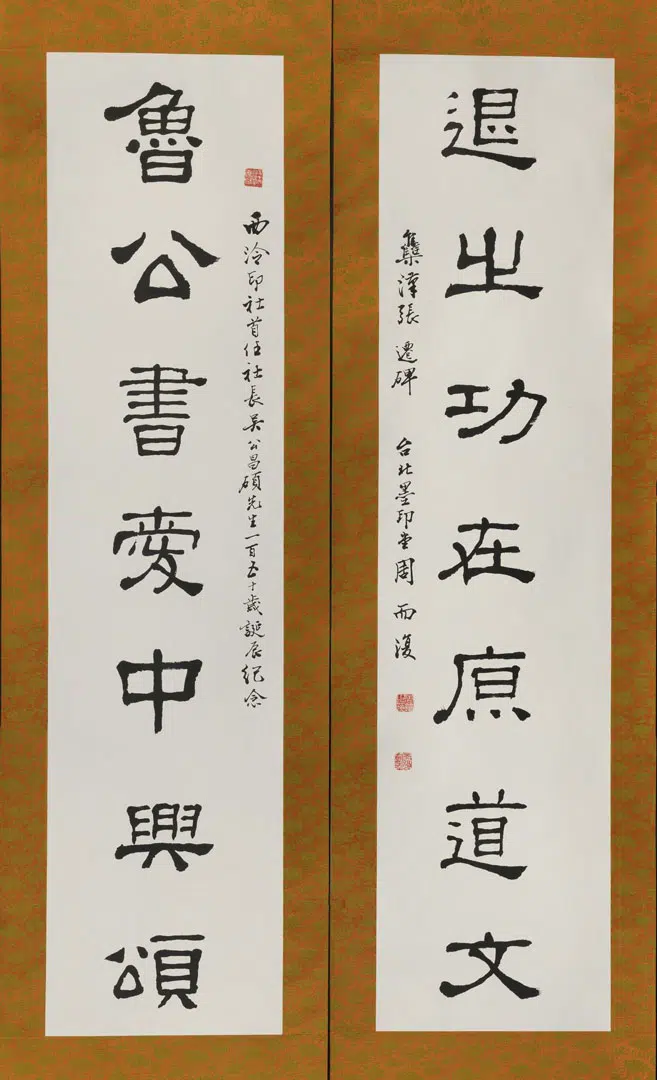 退之功在原道文
集漢張遷碑 台北墨印堂周而復
西泠印社首任社長吳公昌碩先生一百五十歲誕辰紀念
魯公書愛中興頌